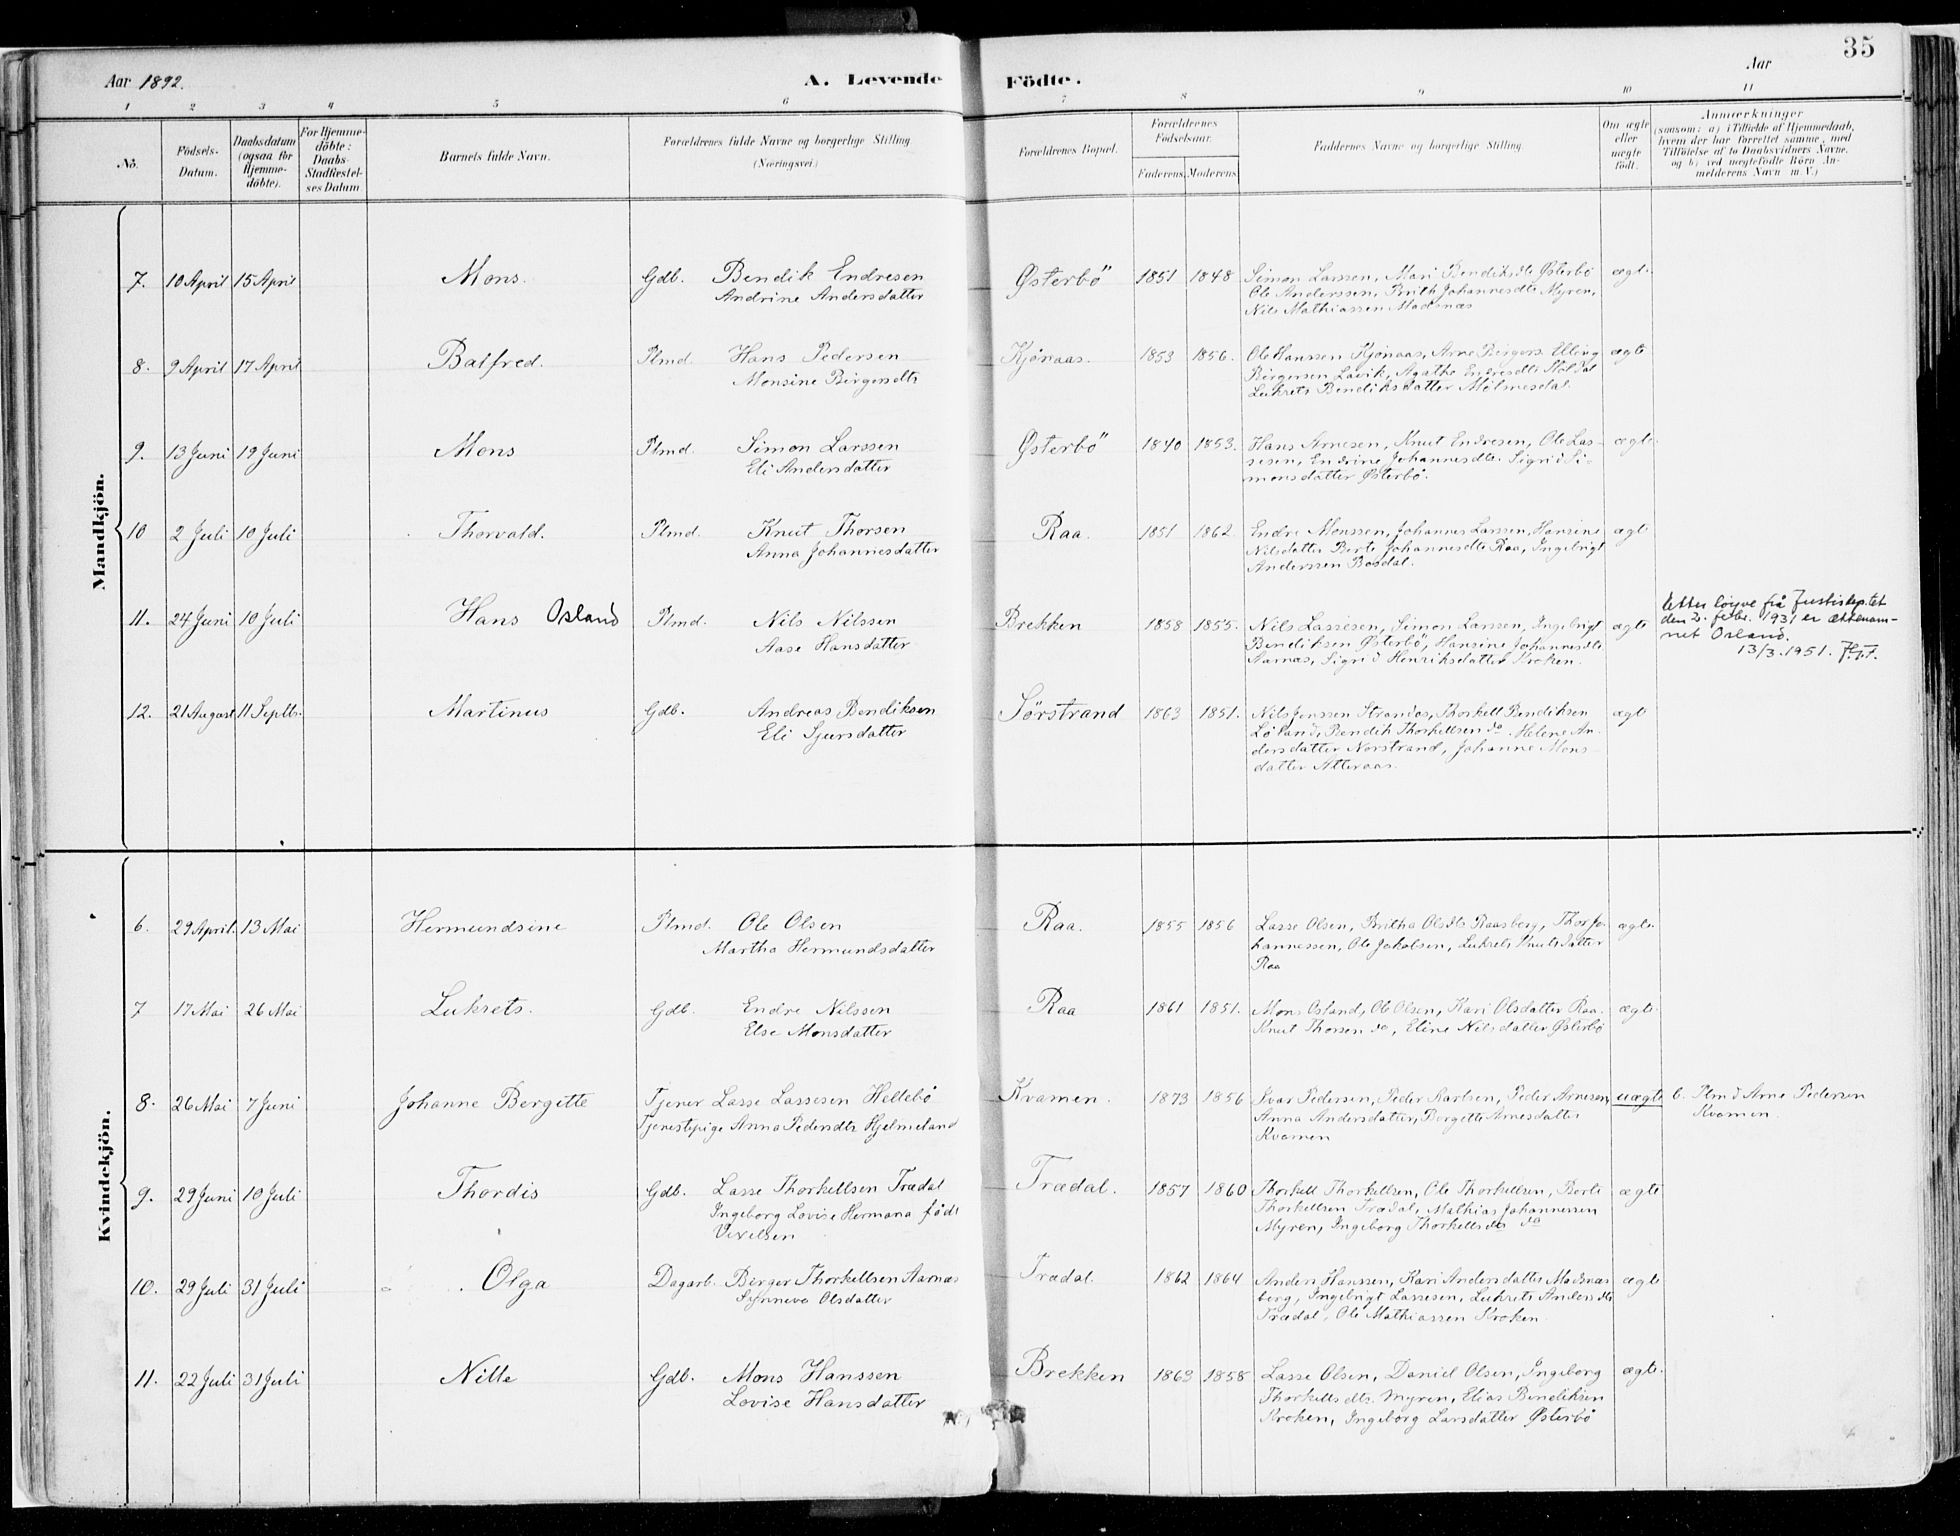 35
Aar 1892.
A. Levende Födte.
Aar
1 2 3 4 5 6 7 8 9 10 11
No.
Födsels-Datum.
Daabsdatum (ogsaa for Hjemme-döbte).
For Hjemme-döbte: Daabs-Stadfæstel-ses Datum.
Barnets fulde Navn.
Forældrenes fulde Navne og borgerlige Stilling (Næringsvei.)
Forældrenes Bopæl.
Forældrenes Födselsaar.
Faderens. Moderens.
Faddernes Navne og borgerlige Stilling.
Om ægte eller uægte födt.
Anmærkninger
(saasom: a) i Tilfælde af Hjemmedaab,
hvem der har forrettet samme, med
Tilföielse af to Daabsvidners Navne,
og b) ved uægtefödte Börn An-
melderens Navn m.V.)
Mandkjön.
7. 10 April 15 April Mons. Gdb. Bendik Endresen Østerbö 1851 1848 Simon Larssen, Mari Bendiksdtr Østerbö ægte
Andrine Andersdatter Ole Anderssen, Brith Johannesdtr Myren,
Nils Mathiassen Madsnæs
8. 9 April 17 April Balfred. Plmd. Hans Pedersen Kjönaas. 1853 1856. Ole Hanssen Kjönaas, Arne Birgers. Elling ægte
Monsine Birgersdtr Birgersen Lavik, Agathe Endresdtr Stöldal
Lukrets Bendiksdatter Mølmesdal.
9. 13 Juni 19 Juni Mons Plmd. Simon Larssen Østerbö 1840 1853. Hans Arnesen, Knut Endresen, Ole Las- ægte
Eli Andersdatter sesen, Endrine Johannesdtr. Sigrid Si-
monsdatter Østerbö.
10 2 Juli 10 Juli Thorvald. Plmd. Knut Thorsen Raa. 1851 1862. Endre Monssen, Johannes Larssen, Hansine ægte
Anna Johannesdatter Nilsdatter Berte Johannesdtr Raa, Ingebrigt
Anderssen Bosdal.
11. 24 Juni 10 Juli Hans Osland Plmd. Nils Nilssen Brekken 1858 1855. Nils Lassesen, Simon Larssen, Ingebrigt ægte
Aase Hansdatter Bendiksen Østerbö, Hansine Johannesdtr
Aarnæs, Sigrid Henriksdatter Kroken.
Etter löyve frå Justisdep.tet
den 2. febr. 1931 er ættenam-
net Osland.
13/3.1951.
12. 21 August 11 Septb. Martinus Gdb. Andreas Bendiksen Sörstrand 1863 1851. Nils Jenssen Strandos, Thorkell Bendiksen ægte
Eli Sjursdatter Löland, Bendik Thorkellsen do. Helene An-
dersdatter Norstrand, Johanne Mons-
datter Atteraas.
Kvindekjön.
6. 29 April 13 Mai Hermundsine Plmd. Ole Olsen Raa. 1855 1856 Lasse Olsen, Britha Olsdtr Raasberg, Thor Jo- ægte
Martha Hermundsdatter hannessen, Ole Jakobsen, Lukrets Knutsdatter
Raa
7 17 Mai 26 Mai Lukrets. Gdb. Endre Nilssen Raa 1861 1851. Mons Osland, Ole Olsen, Kari Olsdatter Raa. ægte
Else Monsdatter Knut Thorsen do, Eline Nilsdatter Østerbö
8. 26 Mai 7 Juni Johanne Bergitte Tjener Lasse Lassesen Hellebö Kvamen. 1873 1856 Ivar Pedersen, Peder Karlsen, Peder Arnesen, uægte b. Plmd Arne Pedersen
Tjenestepige Anna Pedersdtr Hjelmeland Anna Andersdatter, Bergitte Arnesdatter Kvamen.
Kvamen
9. 29 Juni 10 Juli Thordis Gdb. Lasse Thorkellsen Trædal Trædal. 1857 1860 Thorkell Thorkellsen, Ole Thorkellsen, Berte ægte
Ingeborg Lovise Hermana födt Thorkellsen Trædal, Mathias Johannessen
Vexelsen Myren, Ingeborg Thorkellsdtr do
10. 29 Juli 31 Juli Olga Dagarb. Birger Thorkellsen Aarnæs Trædal. 1862 1864 Anders Hanssen, Kari Andersdatter Madsnæs ægte
Synneva Olsdatter berg, Ingebrigt Lassesen, Lukrets Andersdtr
Trædal, Ole Mathiassen Kroken.
11. 22 Juli 31 Juli Nille Gdb. Mons Hanssen Brekken 1863 1858 Lasse Olsen, Daniel Olsen, Ingeborg ægte.
Lovise Hansdatter Thorkellsdtr. Myren, Elias Bendiksen
Kroken, Ingeborg Larsdatter Østerbö